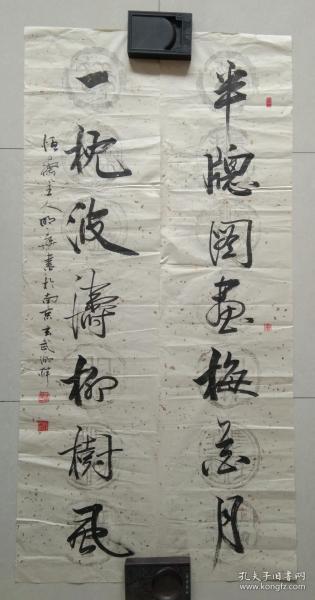 半牕图画梅花月
一枕波涛柳树风
主人明
书于南京玄武湖畔
孔夫子旧书网
www.kongfz.com